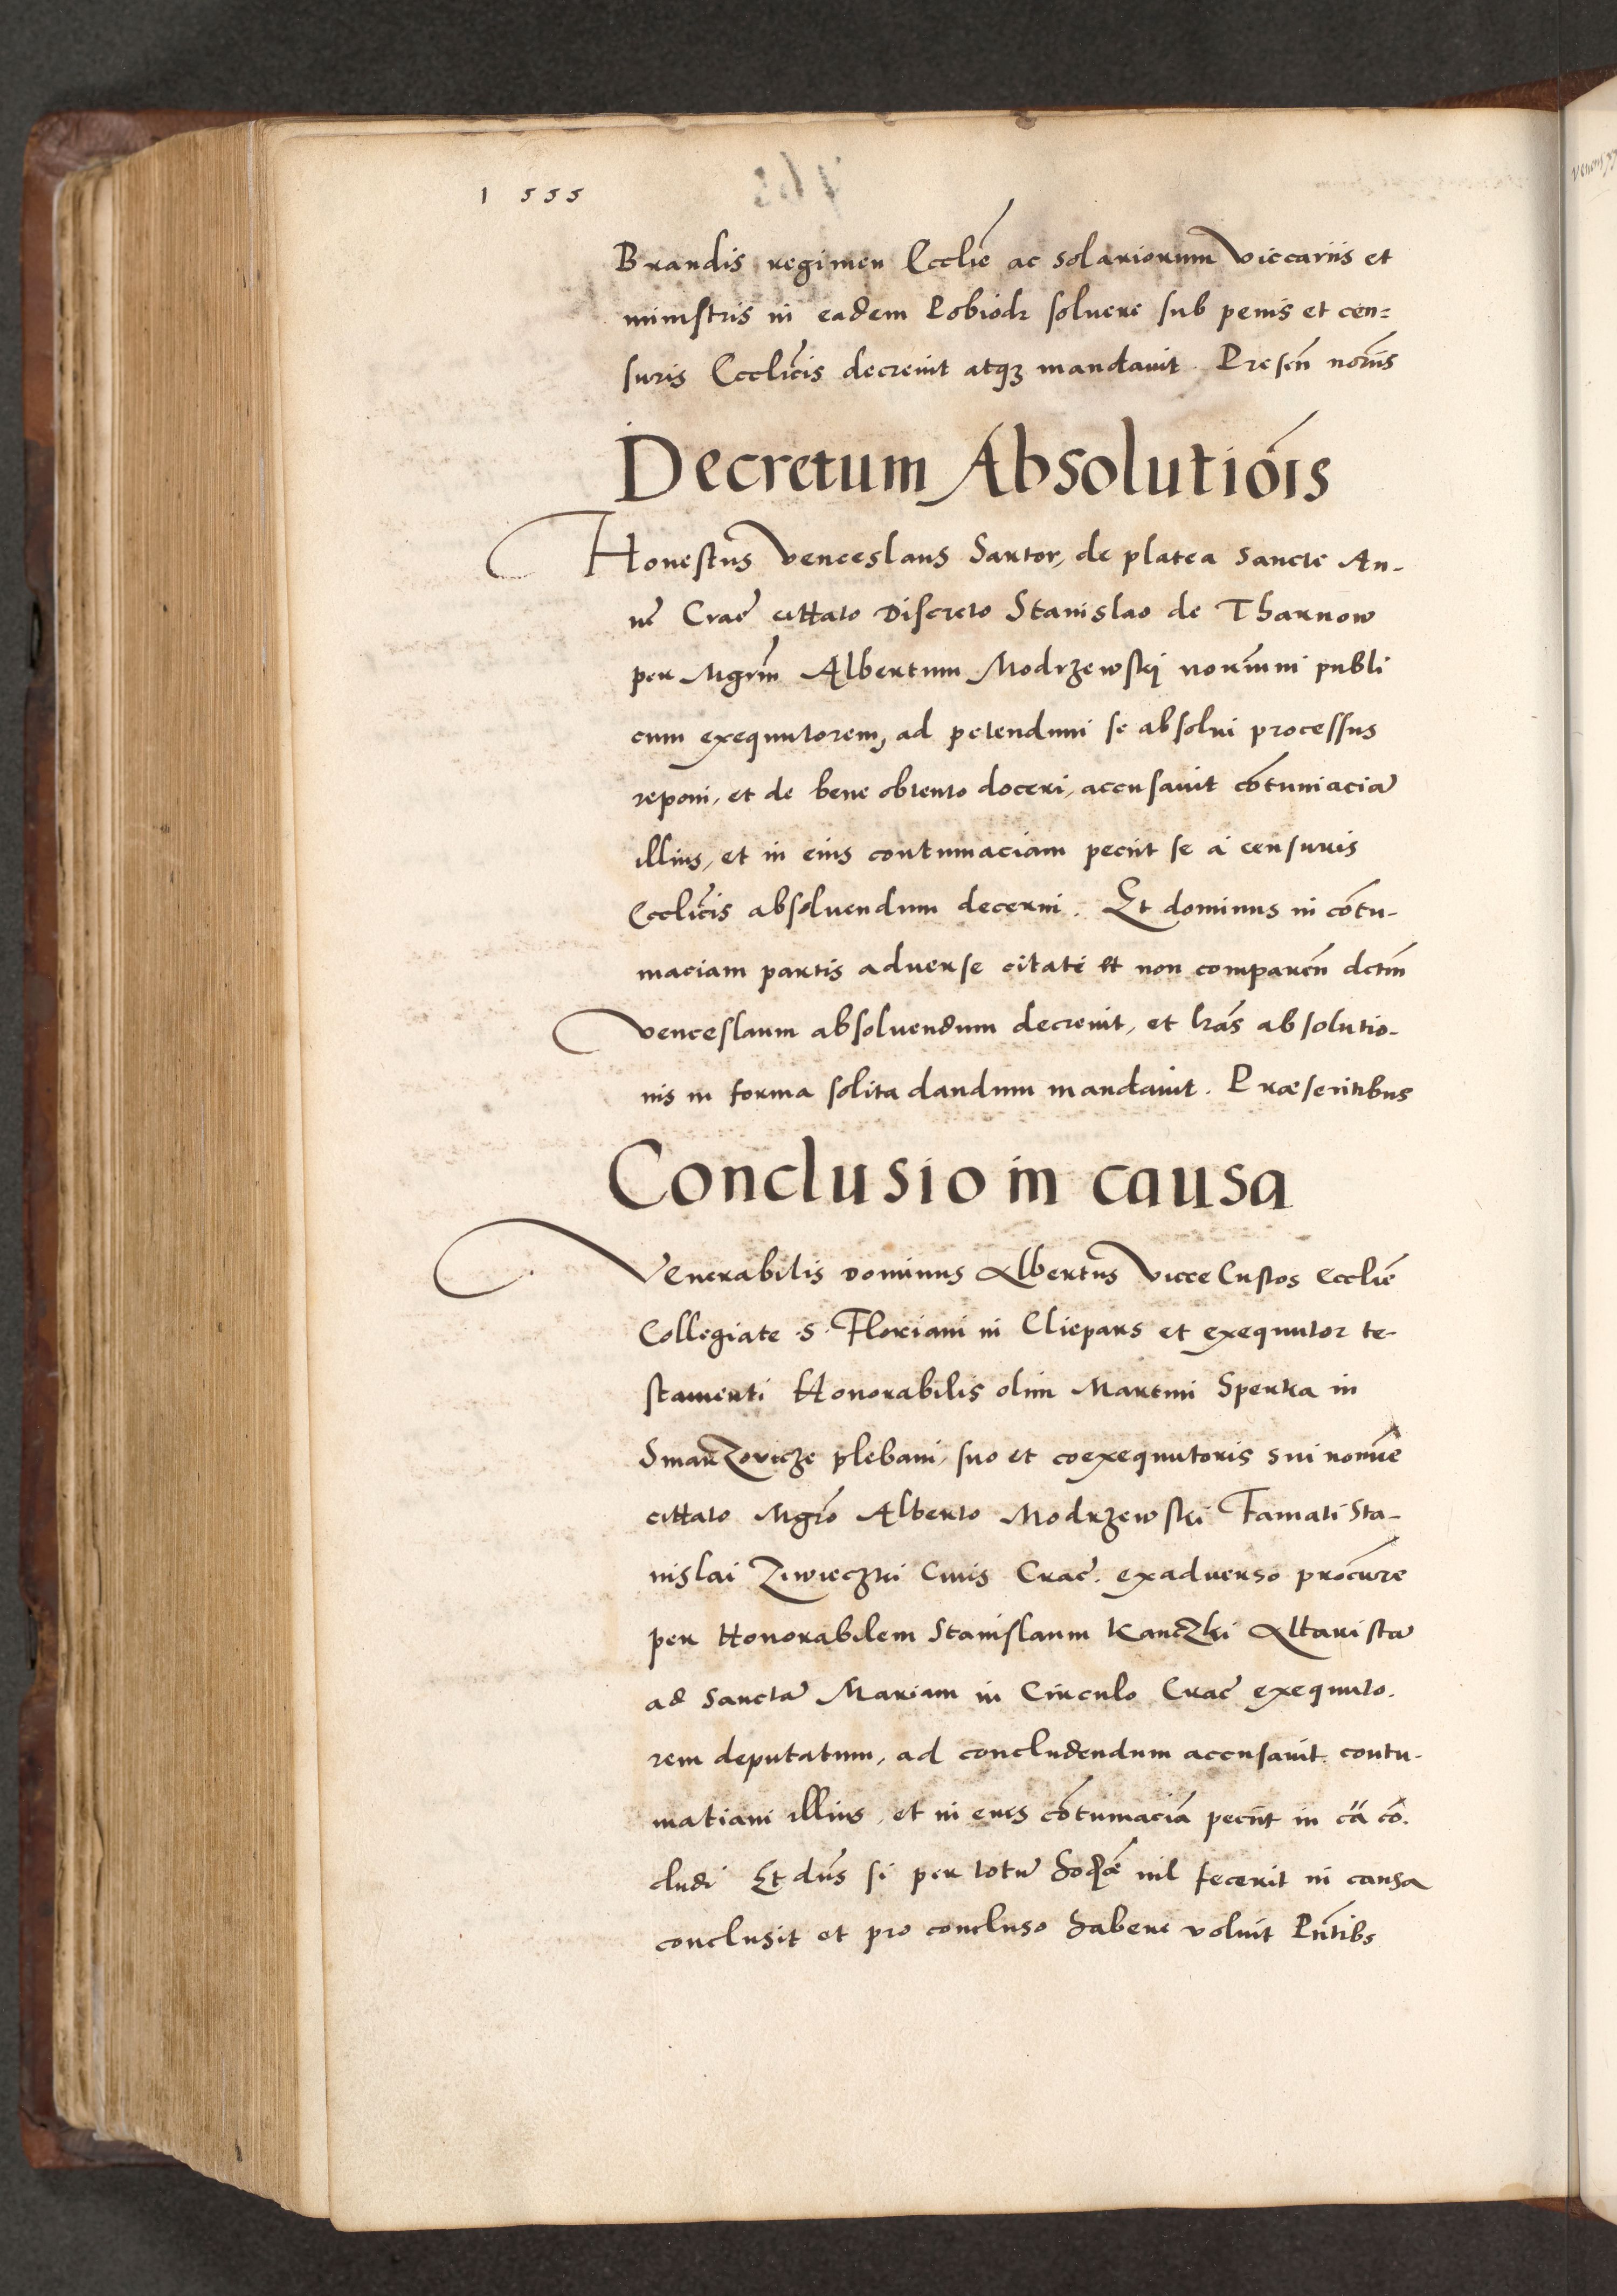 1 555
Brandis regimen Ecclīe ac solariorum viccariis et
ministris in eadem Lobiodr soluere sub penis et cen=
suris Ecclīcis decreuit atqȝ mandauit. Presēn norīis
Decretum Absolutiōis
Honestus Venceslaus Sartor, de platea Sancte An-
nē Crac̄ cittato Discreto Stanislao de Tharnow
per Mgrm̄ Albertum Modrzewskj norīum publi
cum exequutorem, ad petendum se absolui processus
reponi, et de bene obtento doceri, accusauit cōtumaciā
illius, et in eius contumaciam peciit se a censuris
Ecclīcis absoluendum decerni. Et dominus in cōtu-
maciam partis aduerse citate et non comparēn dctm̄
Venceslaum absoluendum decreuit, et lrās absolutio-
nis in forma solita dandum mandauit. Præsentibus
Conclusio in causa
Venerabilis Dominus Albertus Vicce Custos Ecclīe
Collegiate .S. Floriani in Clepars et exequutor te-
stamenti Honorabilis olim Martini Sperka in
Smarzovicze plebani, suo et coexequutoris sui nomīe
cittato Mgrō Alberto Modrzewski Famati Sta-
nislai Ziwieczki Ciuis Crac̄. exaduerso procūre
per Honorabilem Stanislaum Kanczki Altaristā
ad Sanctā Mariam in Circulo Crac̄ exequuto.
rem deputatum, ad concludendum accusauit contu-
matiam illius, et in eius cōtumaciā peciit in cā cō.
cludi Et dn̄s si per totū hodiē nil fecerit in causa
conclusit et pro concluso habere voluit Pn̄tibs